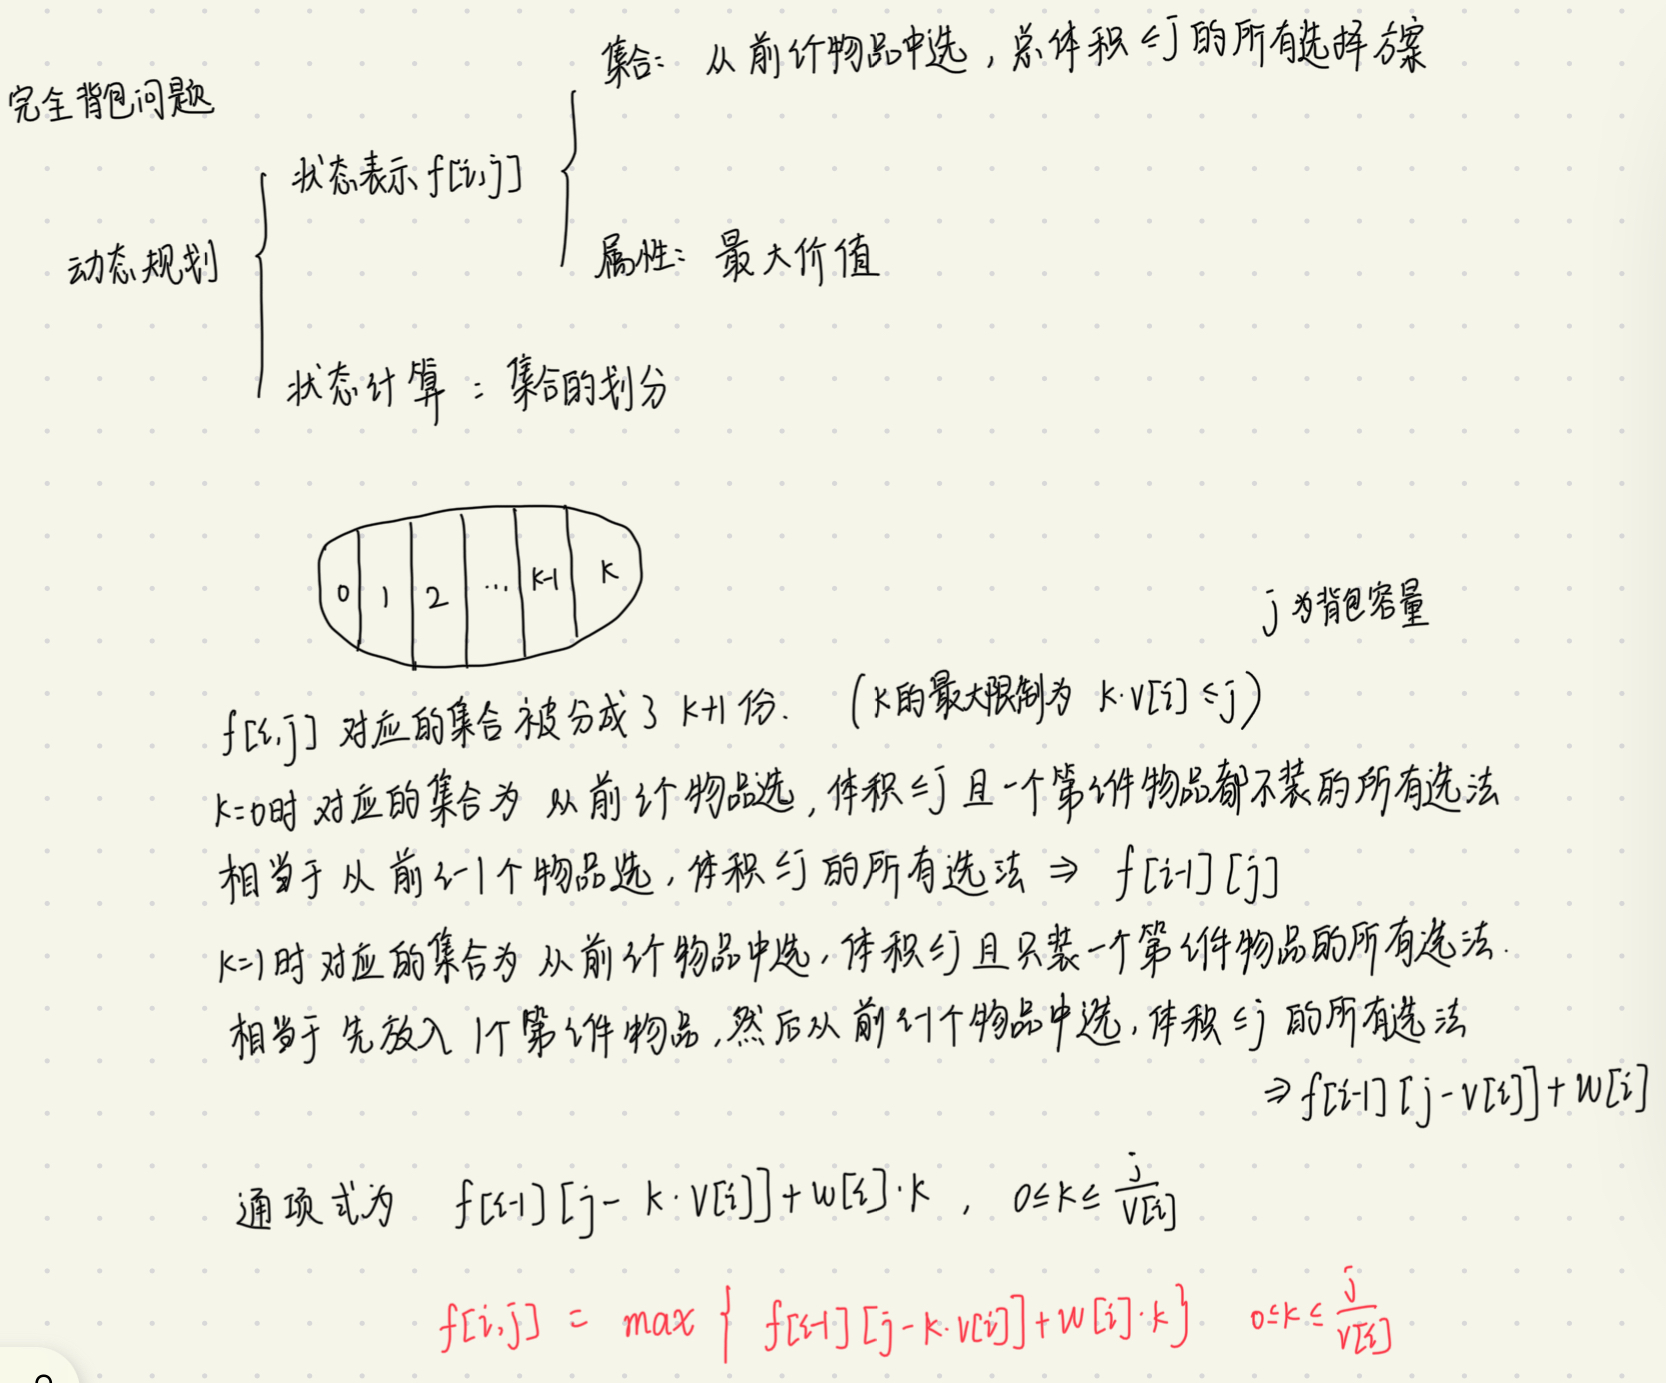 完全背包问题
动态规划
状态表示 f[i,j]
集合: 从前i个物品中选, 总体积≤j的所有选择方案
属性: 最大价值
状态计算: 集合的划分
0 1 2 ... k-1 k
j为背包容量
f[i,j] 对应的集合被分成了 k+1 份. (k的最大限制为 k·v[i]≤j)
k=0时 对应的集合为 从前i个物品选, 体积≤j 且一个第i件物品都不装的所有选法
相当于从前i-1个物品选, 体积≤j的所有选法 ⇒ f[i-1][j]
k=1时 对应的集合为 从前i个物品中选, 体积≤j 且只装一个第i件物品的所有选法.
相当于先放入1个第i件物品, 然后从前i-1个物品中选, 体积≤j 的所有选法
⇒ f[i-1][j-v[i]]+w[i]
通项式为 f[i-1][j-k·v[i]]+w[i]·k , 0≤k≤j/v[i]
f[i,j] = max { f[i-1][j-k·v[i]]+w[i]·k} 0≤k≤j/v[i]